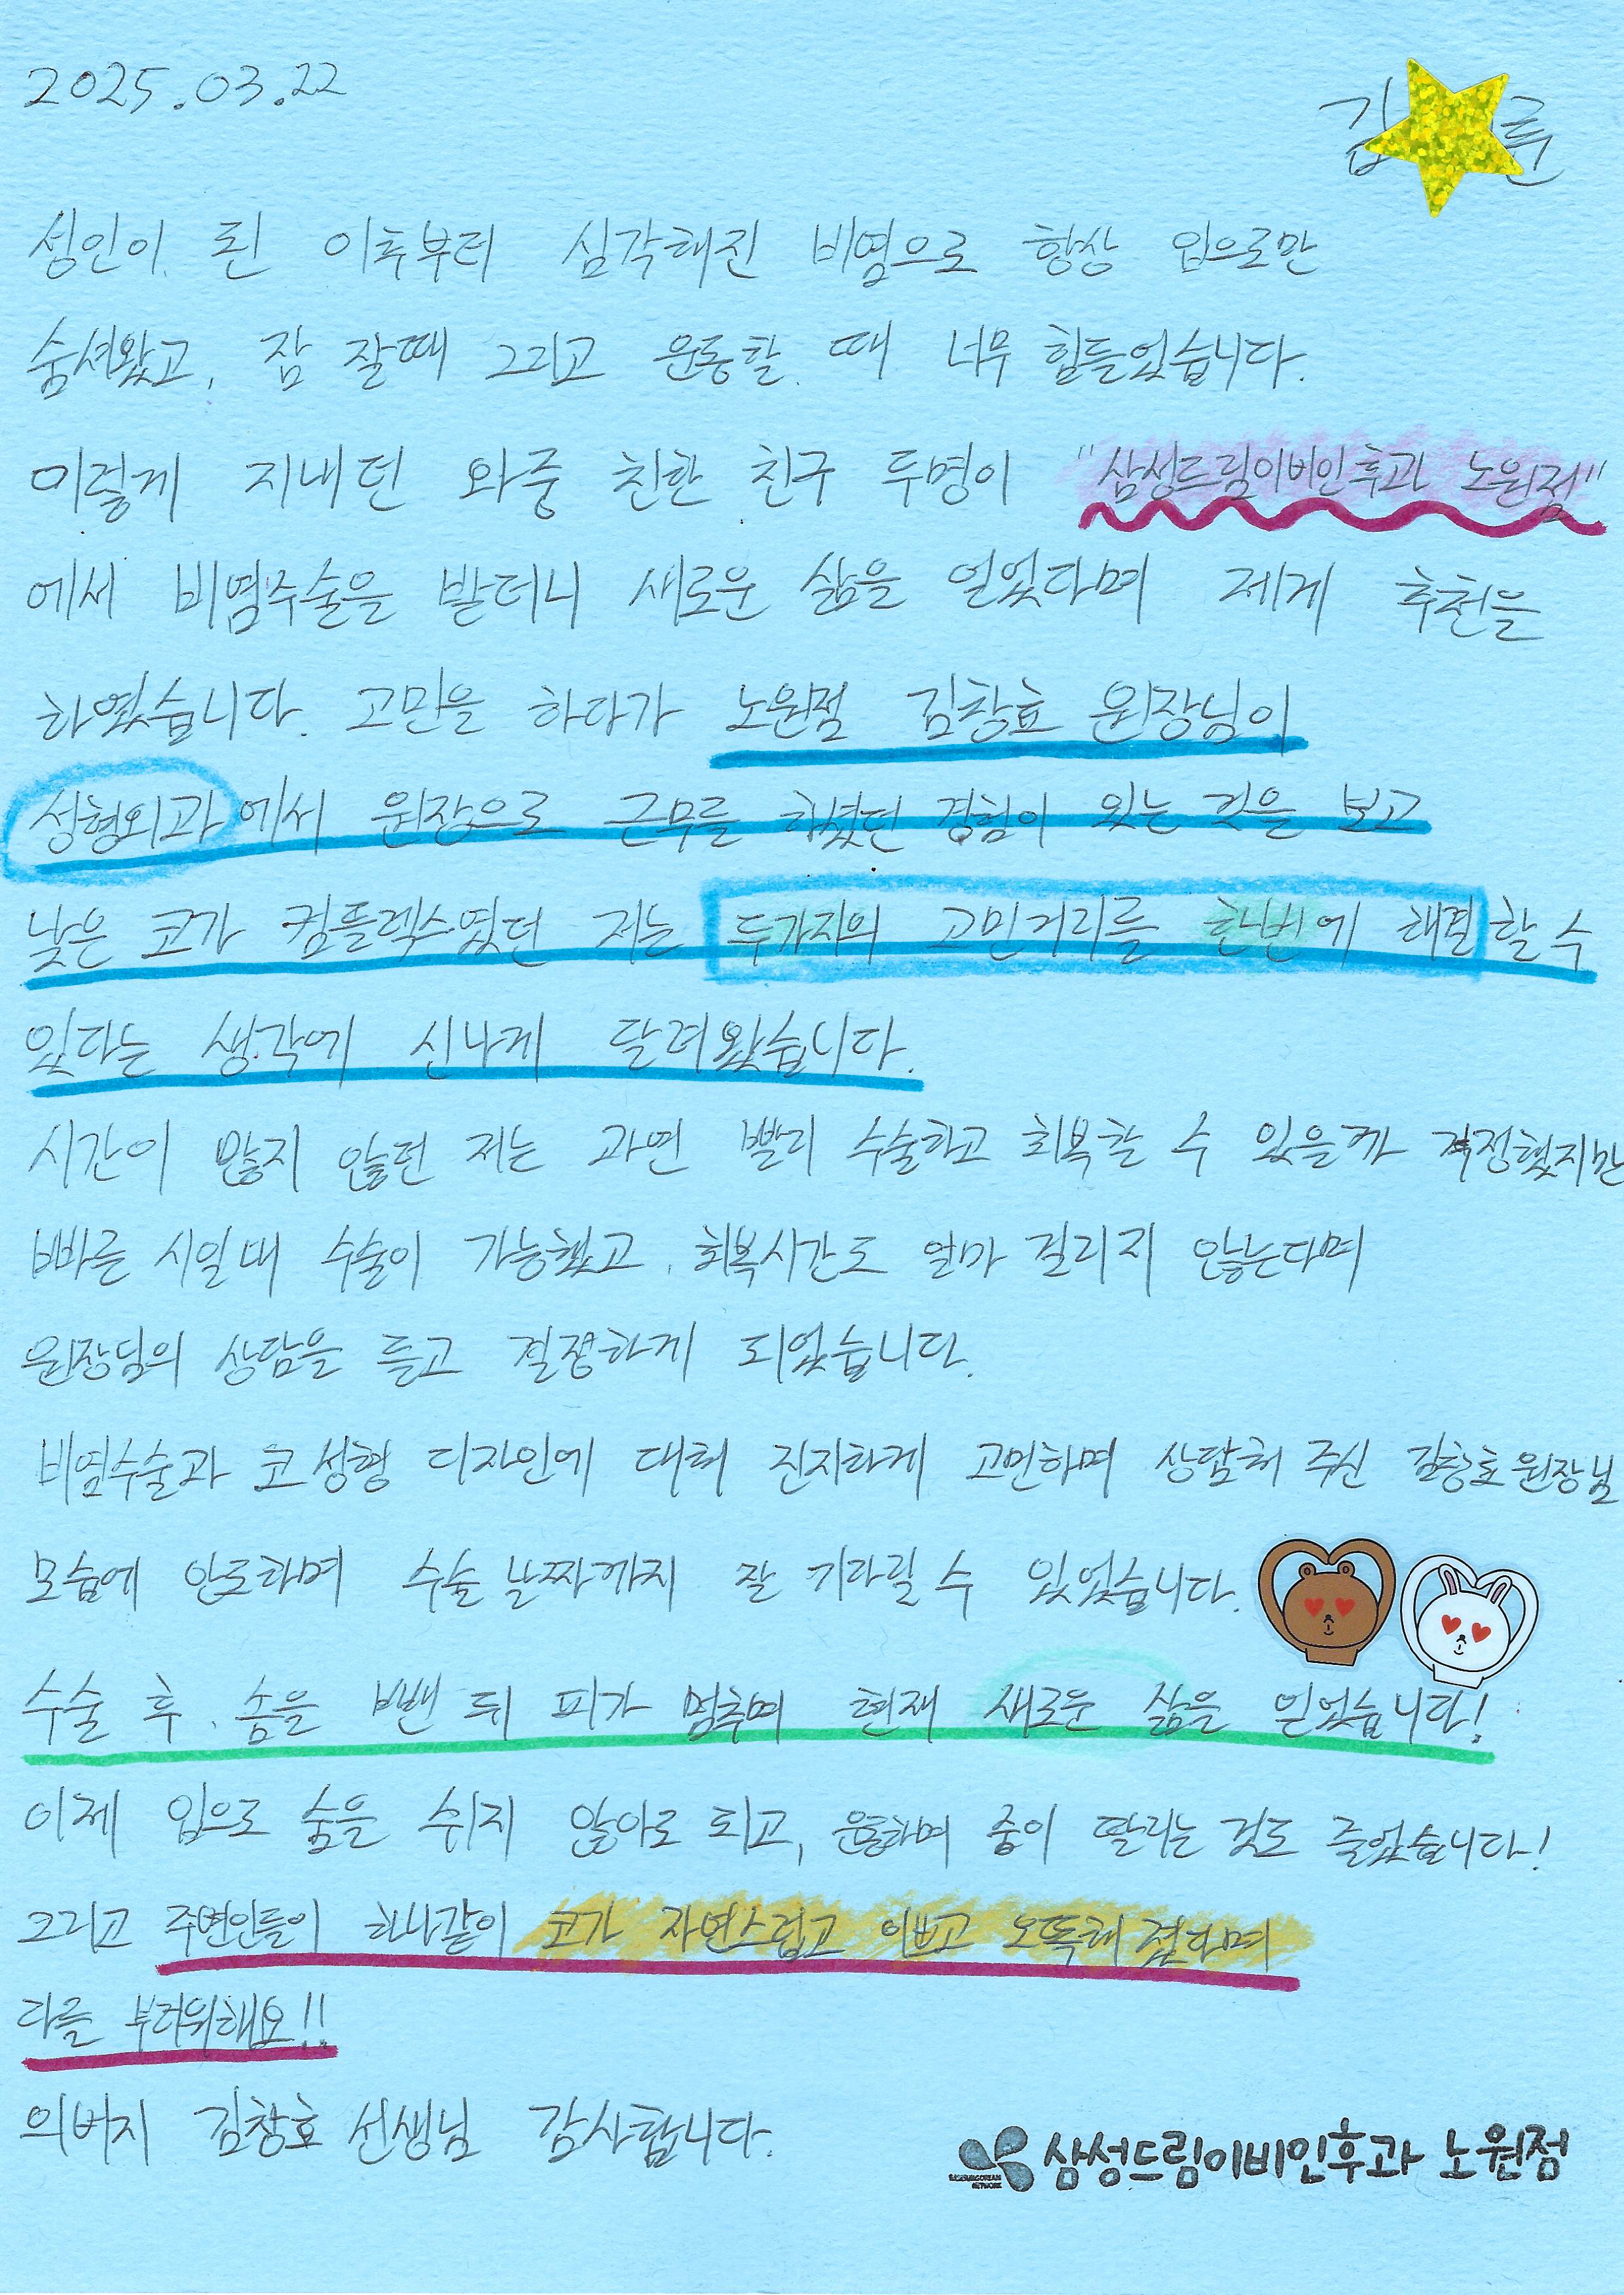 2025.03.22
김 륜
성인이 된 이후부터 심각해진 비염으로 항상 입으로만
숨셔왔고, 잠 잘때 그리고 운동할 때 너무 힘들었습니다.
이렇게 지내던 와중 친한 친구 두명이 "삼성드림이비인후과 노원점"
에서 비염수술을 받더니 새로운 삶을 얻었다며 제게 추천을
하였습니다. 고민을 하다가 노원점 김창효 원장님이
성형외과에서 원장으로 근무를 하셨던 경험이 있는 것을 보고
낮은 코가 컴플렉스였던 저는 두가지의 고민거리를 한번에 해결할 수
있다는 생각에 신나게 달려왔습니다.
시간이 많지 않던 저는 과연 빨리 수술하고 회복할 수 있을까 걱정했지만
빠른 시일내 수술이 가능했고, 회복시간도 얼마 걸리지 않는다며
원장님의 상담을 듣고 결정하게 되었습니다.
비염수술과 코 성형 디자인에 대해 진지하게 고민하며 상담해 주신 김창효원장님
모습에 안도하며 수술 날짜까지 잘 기다릴 수 있었습니다.
수술 후, 솜을 뺀 뒤 피가 멈추며 현재 새로운 삶을 얻었습니다!
이제 입으로 숨을 쉬지 않아도 되고, 운동하며 숨이 딸리는 것도 줄었습니다!
그리고 주변인들이 하나같이 코가 자연스럽고 이쁘고 오똑해졌다며
다들 부러워해요!!
의버지 김창효 선생님 감사합니다.
삼성드림이비인후과 노원점